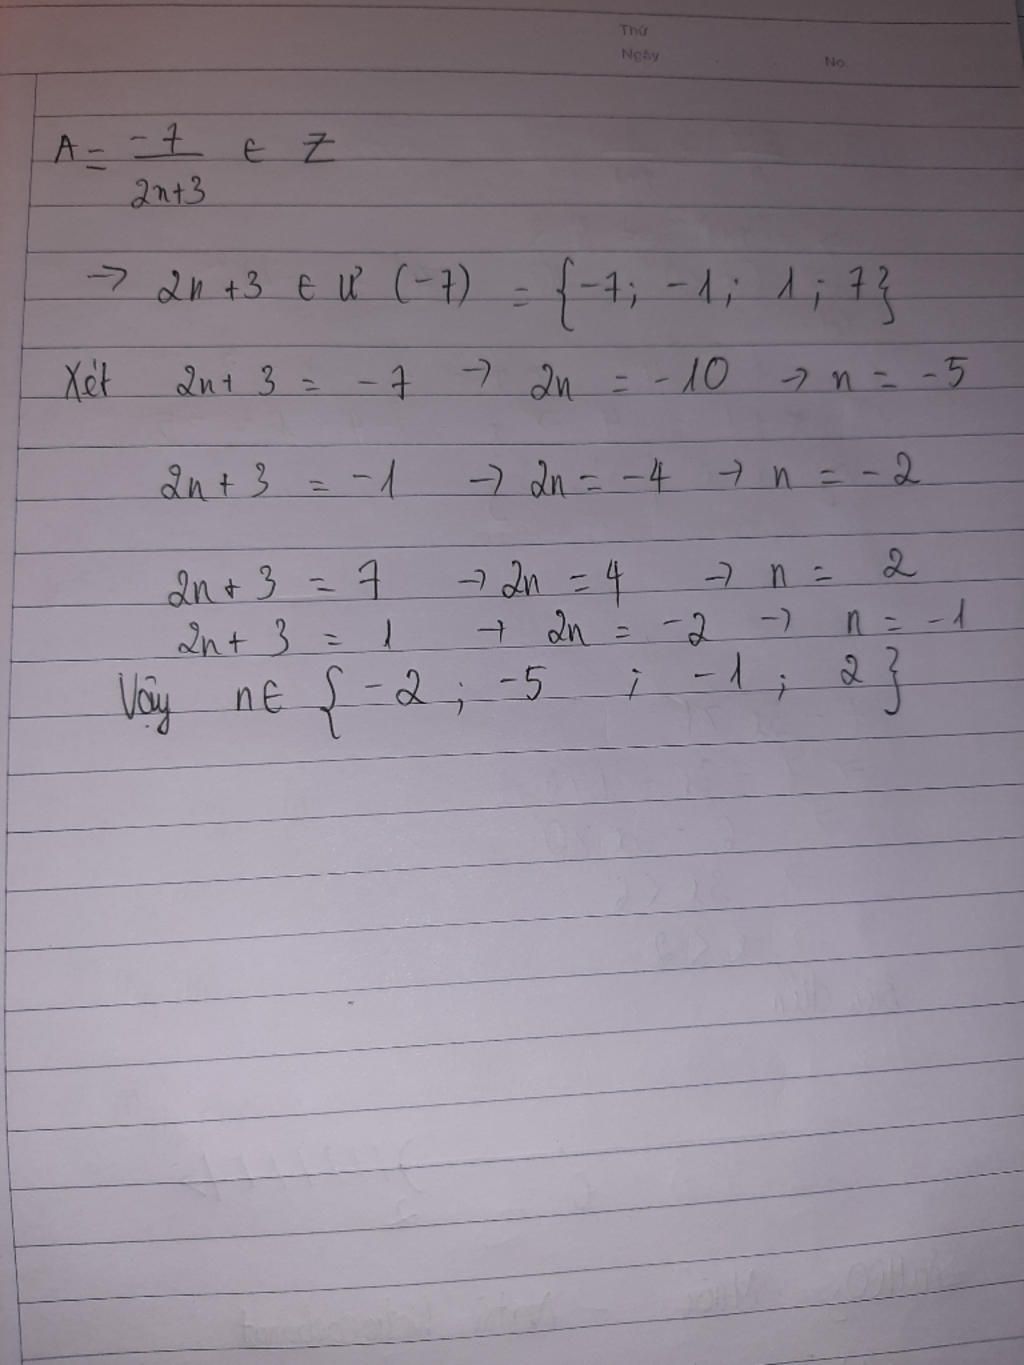 Thứ
Ngày
No
A = -7/(2n+3) ∈ Z
→ 2n + 3 ∈ Ư (-7) = {-7; -1; 1; 7}
Xét 2n + 3 = -7 → 2n = -10 → n = -5
2n + 3 = -1 → 2n = -4 → n = -2
2n + 3 = 7 → 2n = 4 → n = 2
2n + 3 = 1 → 2n = -2 → n = -1
Vậy n ∈ {-2; -5; -1; 2}